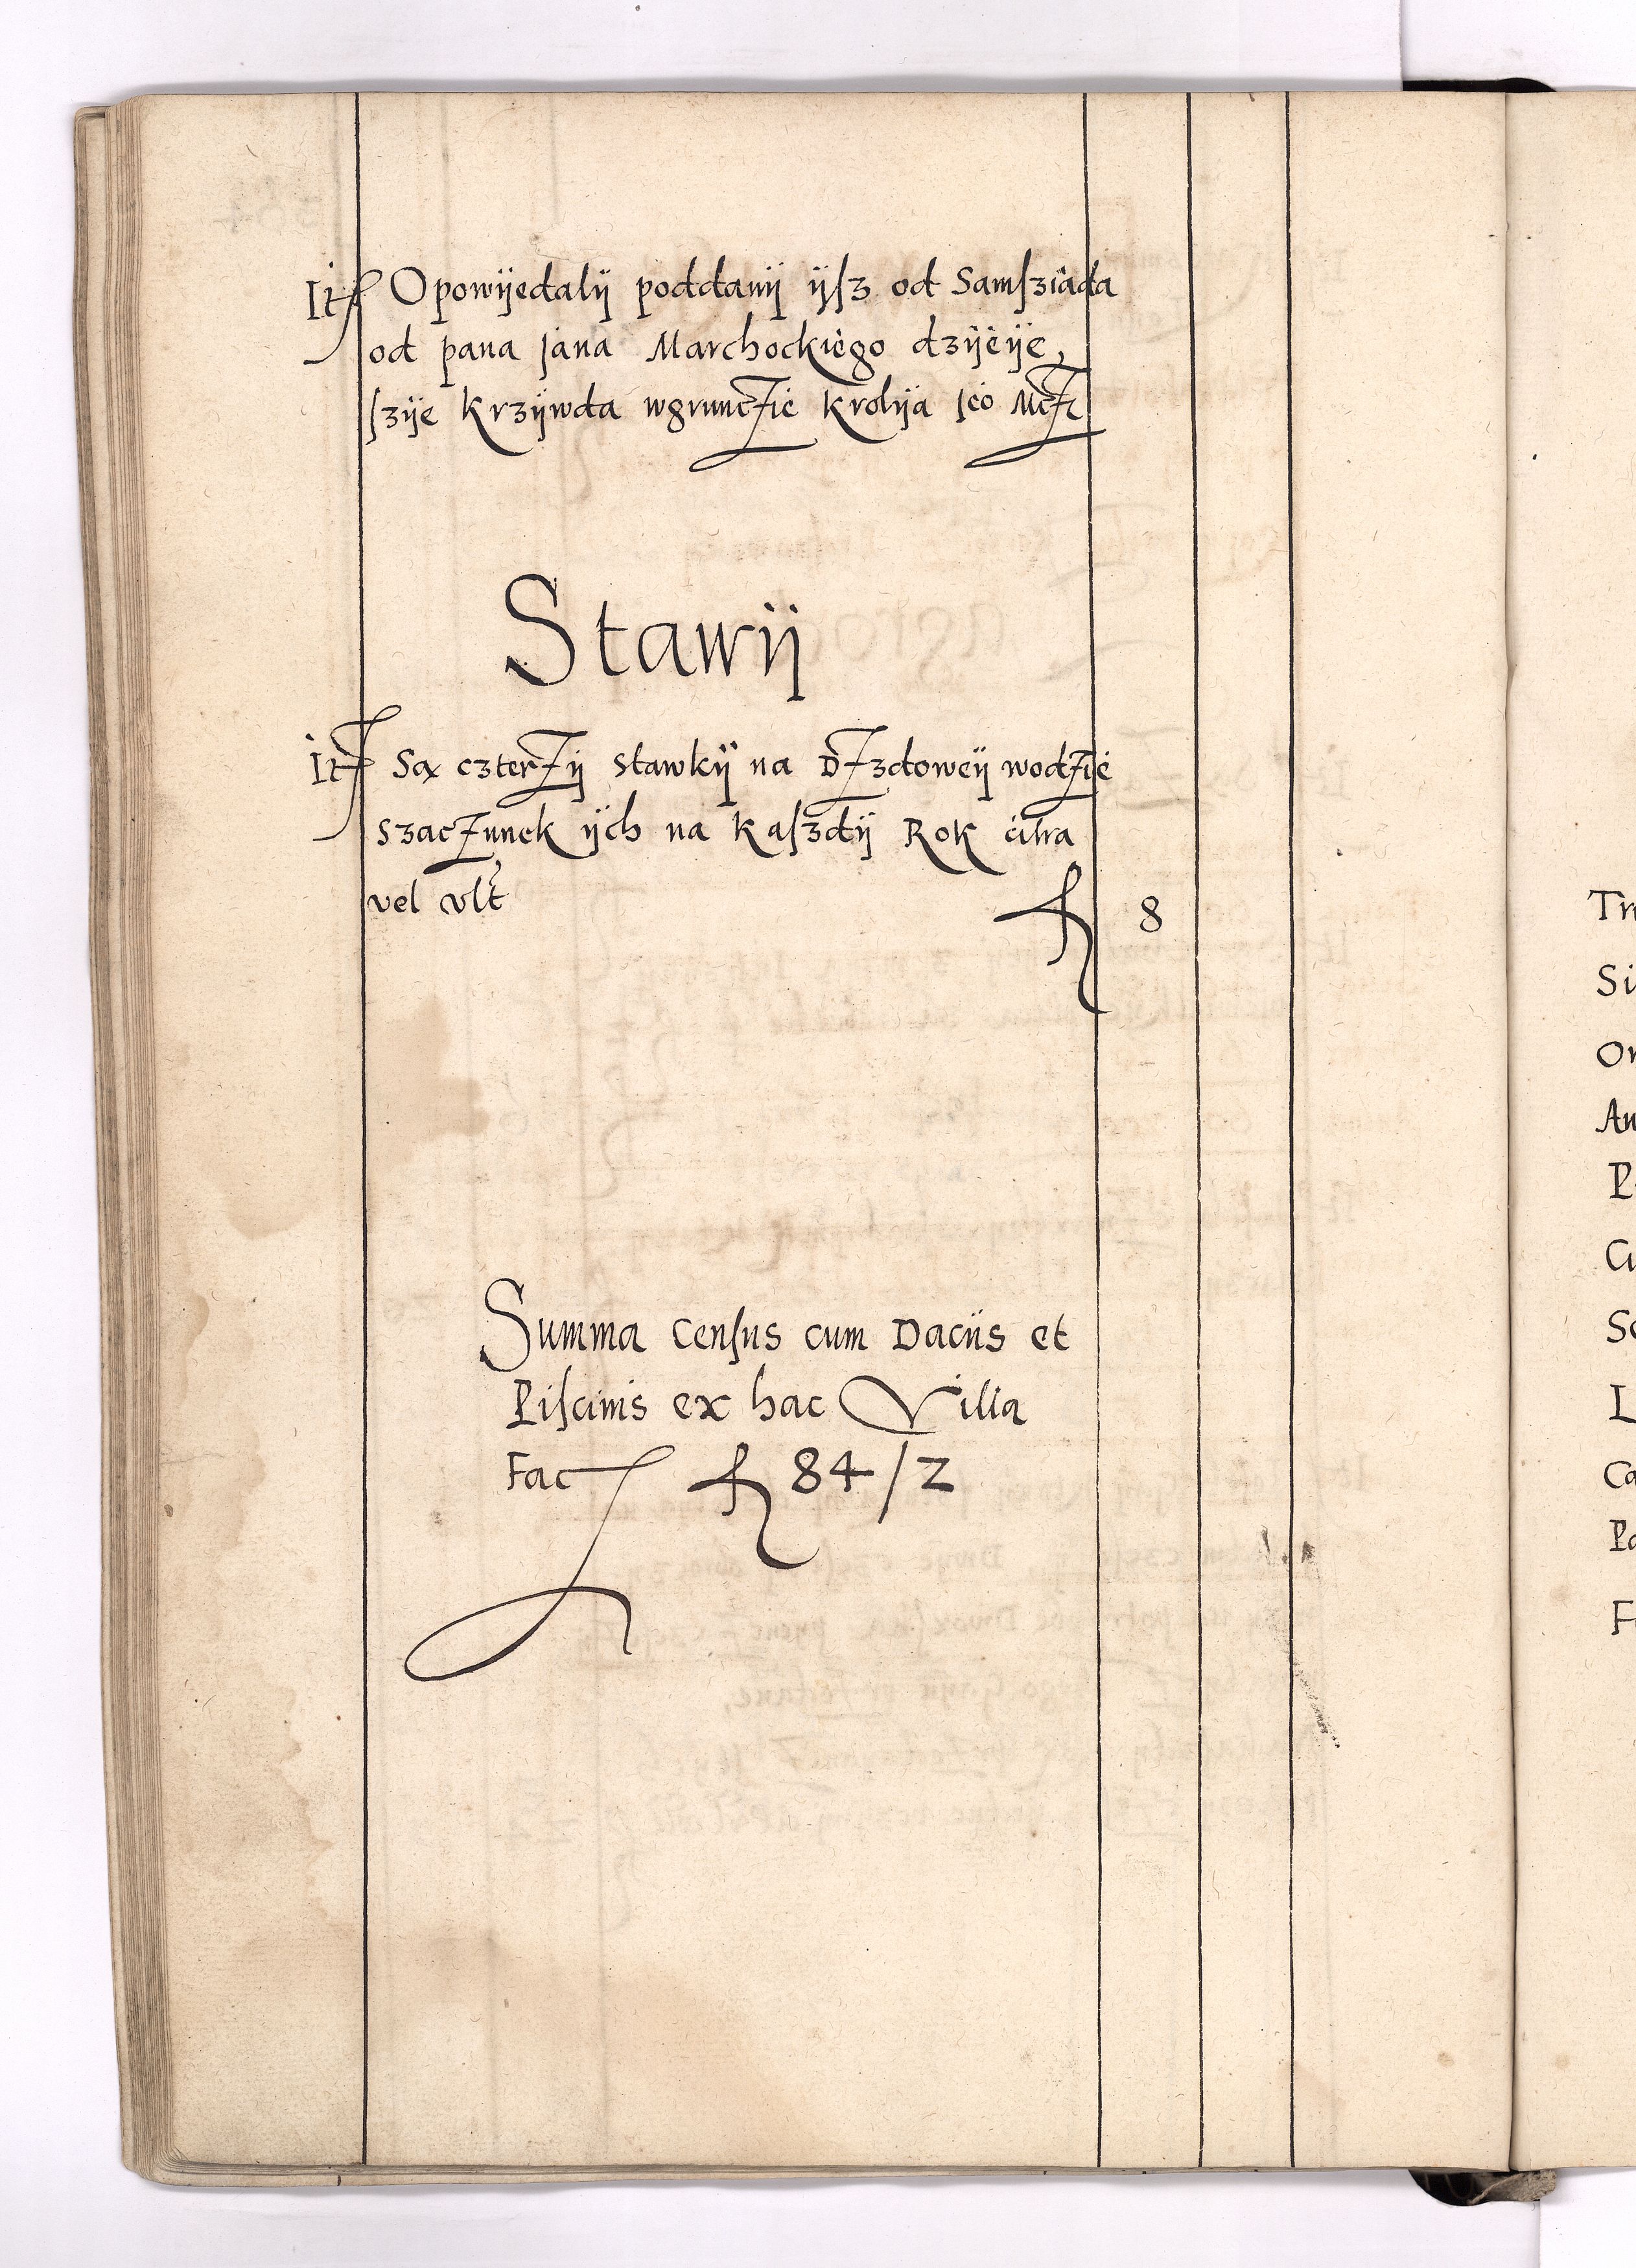 Itm Opowÿedalÿ poddanÿ ÿsz od Samsziada
od pana Jana Marchockiego dzÿeÿe
szÿe krzÿwda wgrunczie krolÿa Jeo Mczi
Stawÿ
Itm Sa czterzÿ stawkÿ na Dzdoweÿ wodzie
szaczunek ÿch na kaszdÿ Rok citra
vel vlt fl 8
Summa census cum Daciis et
Piscinis ex hac Villa
Fac fl 84/2
Tr
Si
An
P
Cu
L
Ca